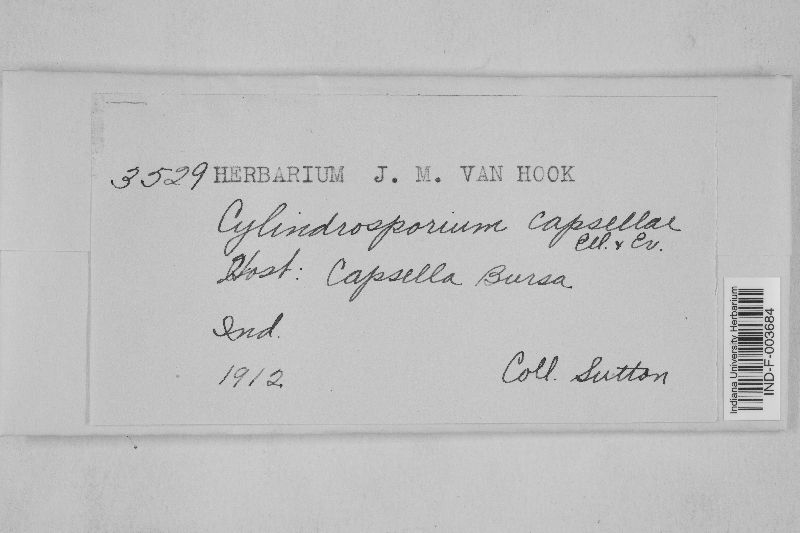 3529 HERBARIUM J. M. VAN HOOK
Cylindrosporium capsellae
Ell. & Ev.
Host: Capsella Bursa
Ind.
1912
Coll. Sutton
Indiana University Herbarium
IND-F-003684